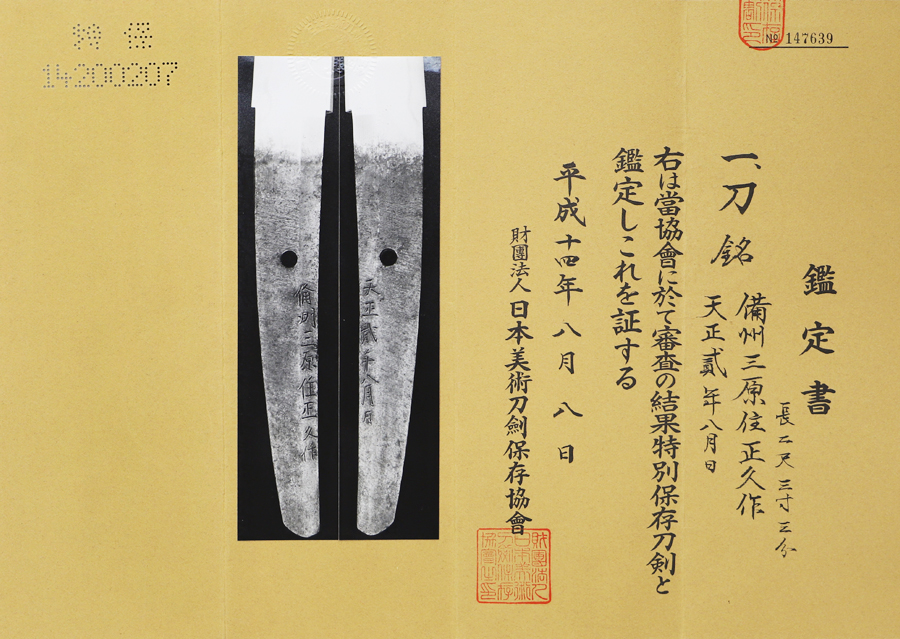 鑑定書
一、刀 銘 備州三原住正久作
天正貳年八月日
長二尺三寸三分
右は當協會に於て審査の結果特別保存刀剣と
鑑定しこれを証する
平成十四年八月八日
財團法人 日本美術刀劍保存協會
№ 147639
特保
14200207
備州三原住正久作
天正貳年八月日